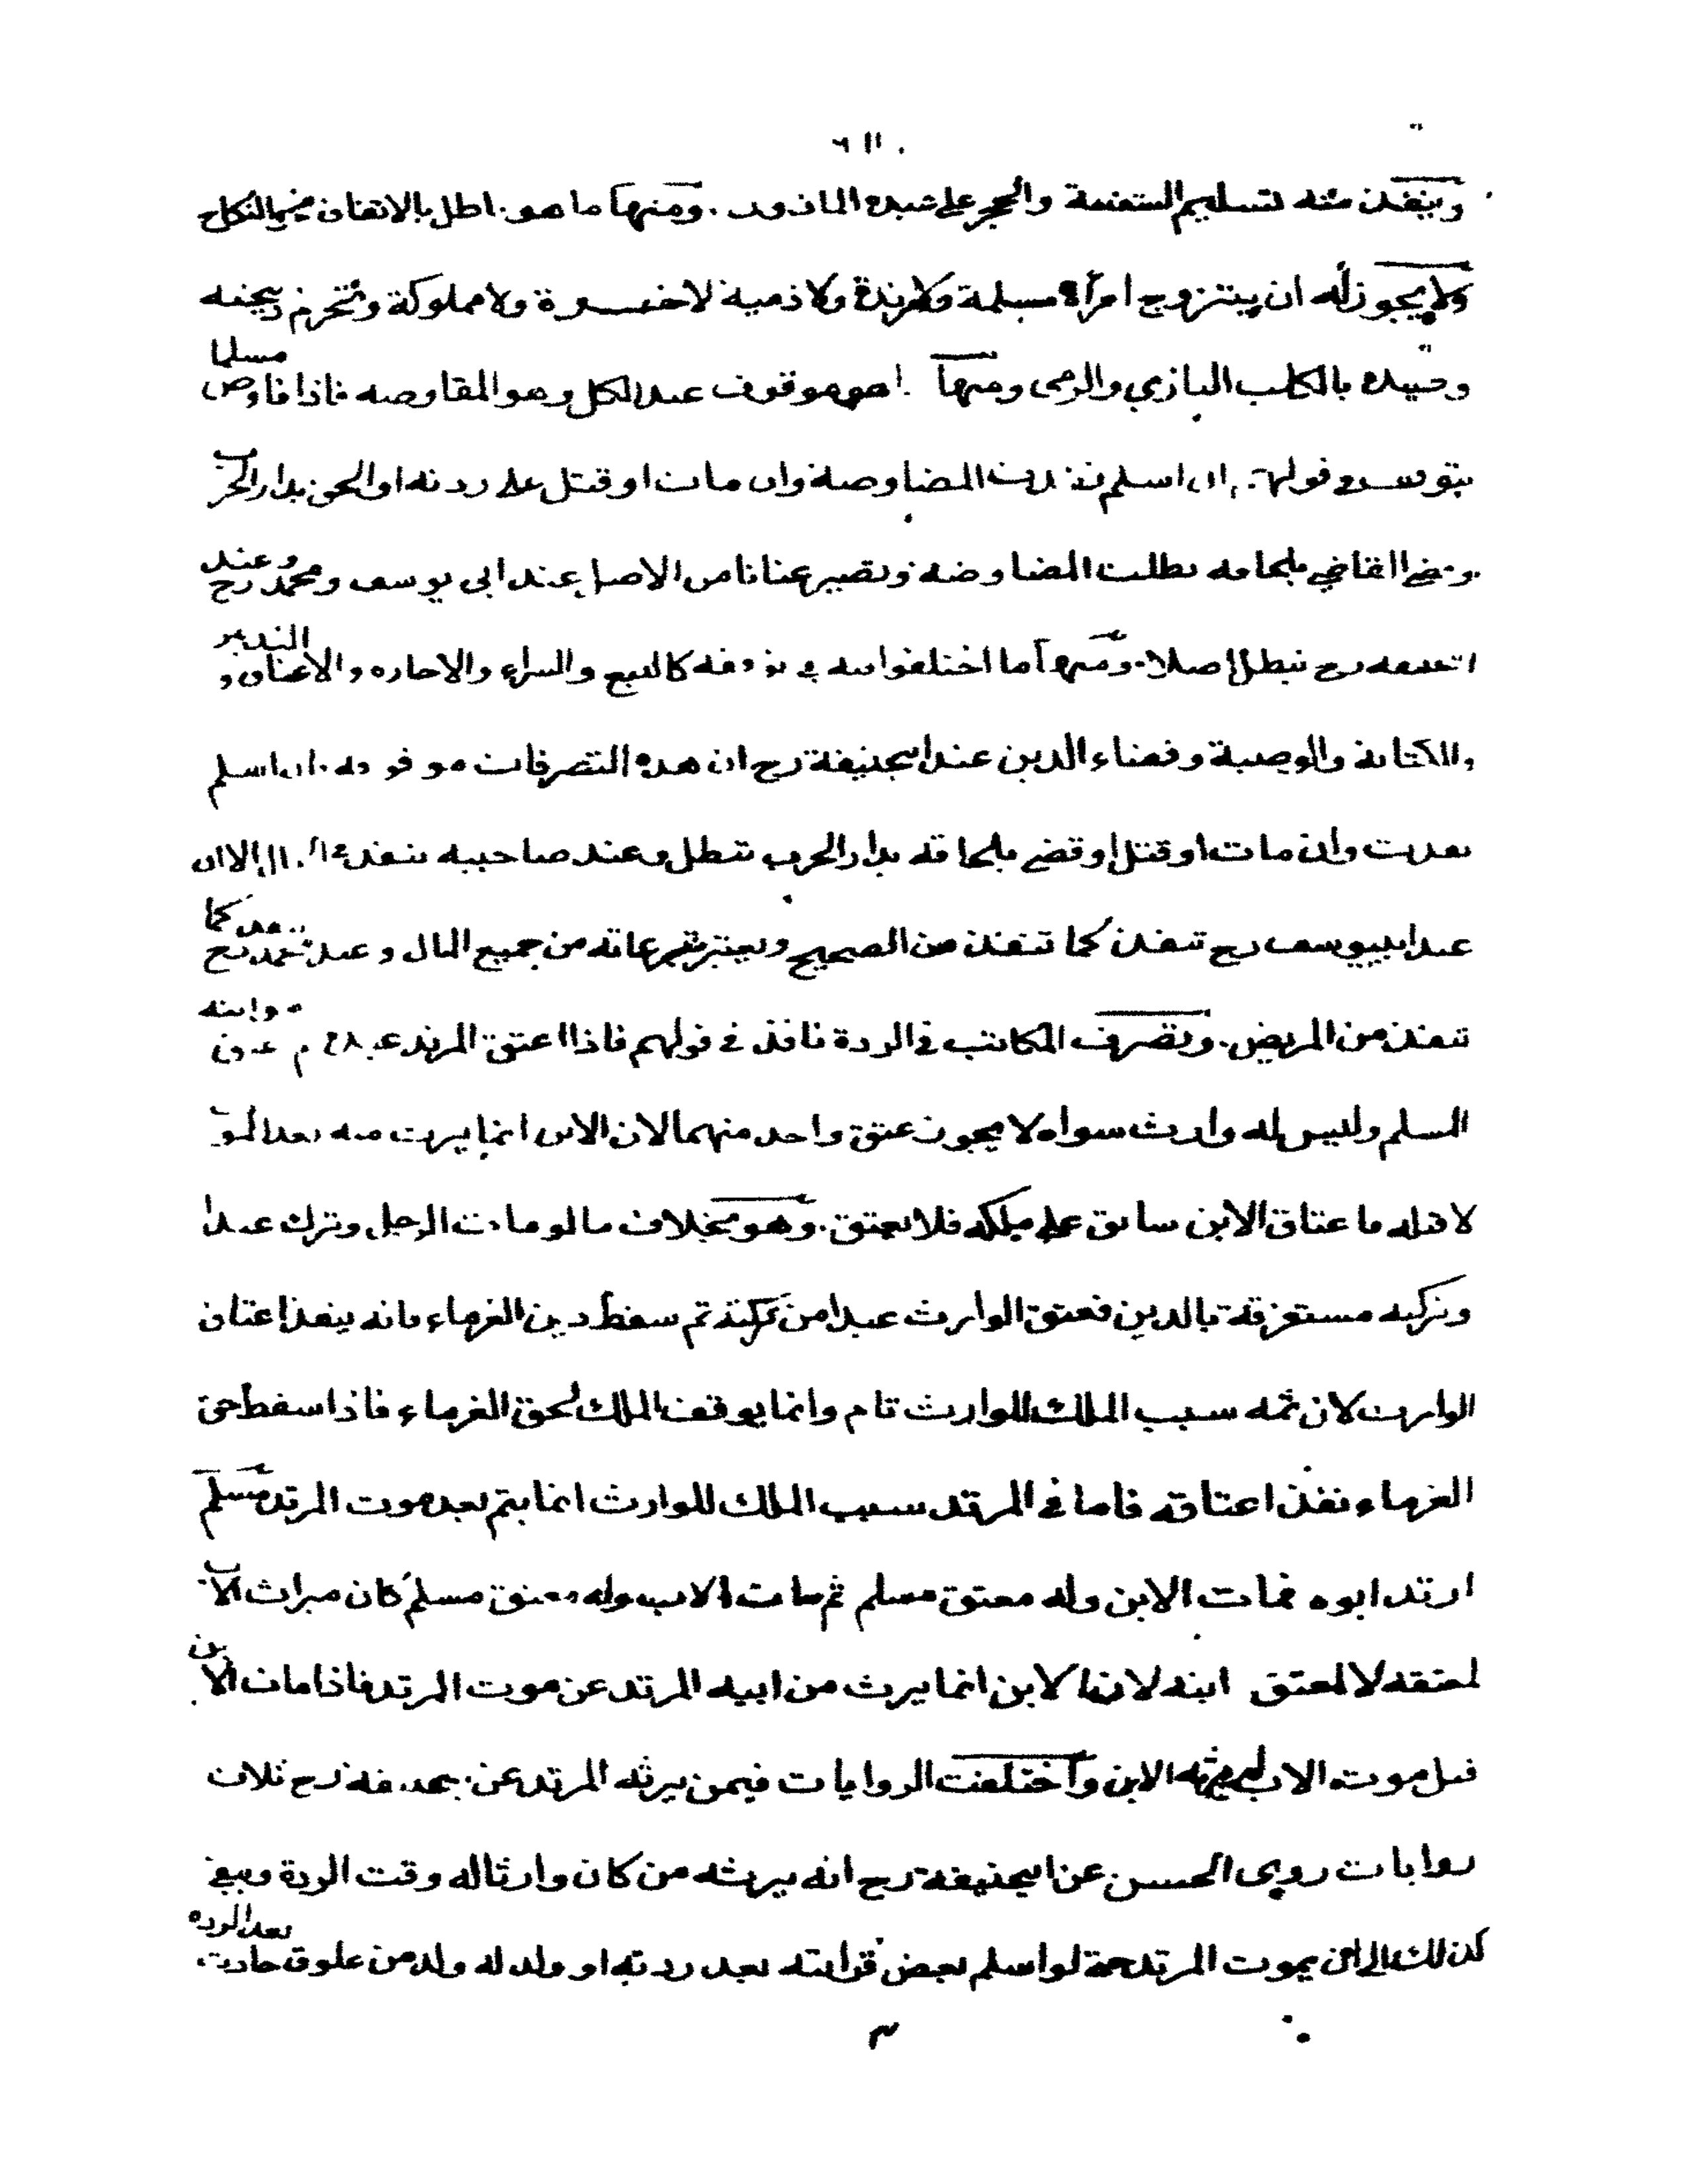 وينفذ منه تسليم الشفعة والحجر على عبده الماذون. ومنها ما هو باطل بالاتفاق نحو النكاح
ولا يجوز له ان يتزوج امرأة مسلمة ولا مرتدة ولا ذمية لا حرة ولا مملوكة وتحرم ذبيحته
وصيده بالكلب والبازي والرمي ومنها ما هو موقوف عند الكل وهو المفاوضة فاذا فاوض مسلما
يتوقف في قولهم ان اسلم نفذت المفاوضة وان مات او قتل على ردته او لحق بدار الحرب
وقضى القاضي بلحاقه بطلت المفاوضة وتصير عنانا من الاصل عند ابي يوسف ومحمد رح وعند
ابي حنيفة رح تبطل اصلا. ومنها ما اختلفوا في توقفه كالبيع والشراء والاجارة والاعتاق والتدبير
والكتابة والوصية وقضاء الدين عند ابيحنيفة رح ان هذه التصرفات موقوفة ان اسلم
نفذت وان مات او قتل او قضى بلحاقه بدار الحرب تبطل وعند صاحبيه تنفذ في الحال الا ان
عند ابييوسف رح تنفذ كما تنفذ من الصحيح ويعتبر تبرعاته من جميع المال وعند محمد رح تنفذ كما
تنفذ من المريض. وتصرف المكاتب في الردة نافذ في قولهم فاذا اعتق المرتد عبده ثم عتق وابنه
المسلم وليس له وارث سواه لا يجوز عتق واحد منهما لان الابن انما يرث منه بعد الموت
لا قبله فاعتاق الابن سابق على ملكه فلا يعتق. وهو بخلاف ما لو مات الرجل وترك عبدا
وتركته مستغرقة بالدين فعتق الوارث عبدا من تركته ثم سقط دين الغرماء فانه ينفذ اعتاق
الوارث لان ثمه سبب الملك للوارث تام وانما يوقف الملك لحق الغرماء فاذا سقط حق
الغرماء نفذ اعتاقه فاما في المرتد سبب الملك للوارث انما يتم بعد موت المرتد مسلم
ارتد ابوه فمات الابن وله معتق مسلم ثم مات الاب وله معتق مسلم كان ميراث الاب
لمعتقه لا لمعتق ابنه لان الابن انما يرث من ابيه المرتد عن موت المرتد فاذا مات الابن
قبل موت الاب لم يرثه الابن واختلفت الروايات فيمن يرثه المرتد عن ابيحنيفة رح ثلاث
روايات روى الحسن عن ابيحنيفة رح انه يرثه من كان وارثا له وقت الردة ويبقى
كذلك الى ان يموت المرتد حتى لو اسلم بعض قرابته بعد ردته او ولد له ولد من علوق حادث بعد الردة